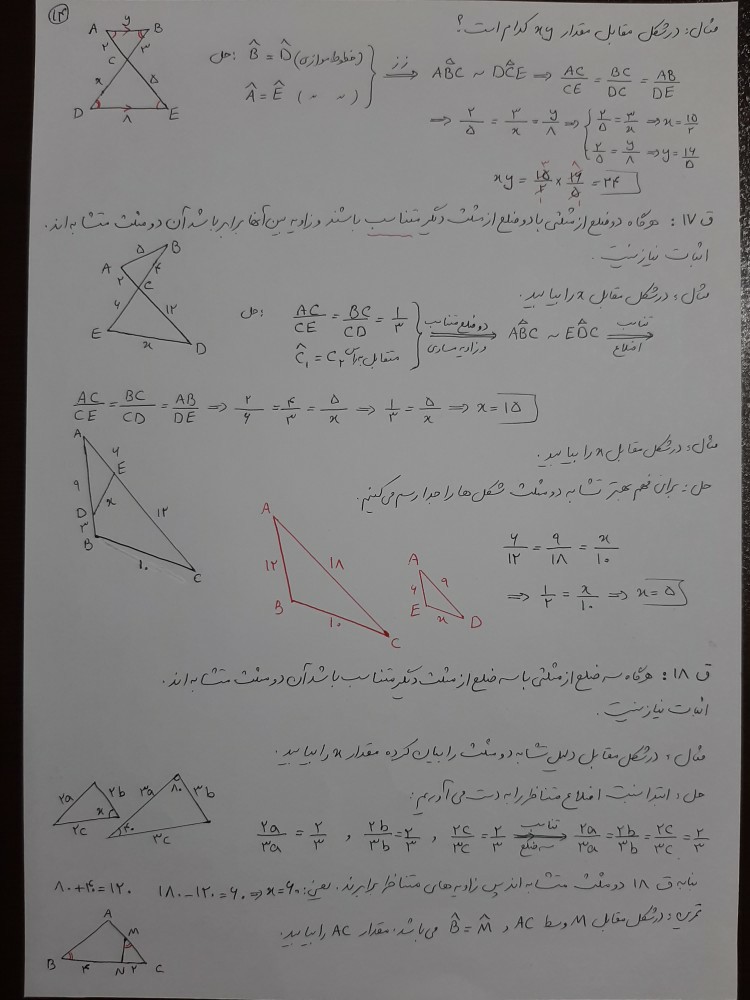 ۱۴
مثال: در شکل مقابل مقدار xy کدام است؟
A y B
۲ ۳
C
x ۵
D ۸ E
حل: B̂ = D̂ (خطوط موازی)
Â = Ê (〃 〃)
} ⟹ زز AB̂C ~ DĈE ⟹ AC/CE = BC/DC = AB/DE
⟹ ۲/۵ = ۳/x = y/۸ ⟹ { ۲/۵ = ۳/x ⟹ x = ۱۵/۲
۲/۵ = y/۸ ⟹ y = ۱۶/۵
xy = ۱۵/۲ × ۱۶/۵ = ۲۴
ق ۱۷: هرگاه دو ضلع از مثلثی با دو ضلع از مثلث دیگر متناسب باشند و زاویه بین آنها برابر باشد آن دو مثلث متشابه اند.
اثبات نیاز نیست.
مثال: در شکل مقابل x را بیابید.
A ۵ B
۲ ۴
C
۶ ۱۲
E x D
حل: AC/CE = BC/CD = ۱/۳
Ĉ₁ = C₂ متقابل براس
} ⟹ دو ضلع متناسب و زاویه مساوی AB̂C ~ ED̂C ⟹ تناسب اضلاع
AC/CE = BC/CD = AB/DE ⟹ ۲/۶ = ۴/۳ = ۵/x ⟹ ۱/۳ = ۵/x ⟹ x = ۱۵
مثال: در شکل مقابل x را بیابید.
حل: برای فهم بهتر تشابه دو مثلث شکل ها را جدا رسم می‌کنیم.
A
۶
E
۹ x ۱۲
D
۳
B
۱۰ C
A
۱۲ ۱۸
B
۱۰ C
A
۶ ۹
E x D
۶/۱۲ = ۹/۱۸ = x/۱۰
⟹ ۱/۲ = x/۱۰ ⟹ x = ۵
ق ۱۸: هرگاه سه ضلع از مثلثی با سه ضلع از مثلث دیگر متناسب باشد آن دو مثلث متشابه اند.
اثبات نیاز نیست.
مثال: در شکل مقابل دلیل تشابه دو مثلث را بیان کرده مقدار x را بیابید.
۲a ۲b x ۲c
۳a ۸۰ ۳b ۴۰ ۳c
حل: ابتدا نسبت اضلاع متناظر را به دست می آوریم:
۲a/۳a = ۲/۳ , ۲b/۳b = ۲/۳ , ۲c/۳c = ۲/۳ ⟹ تناسب سه ضلع ۲a/۳a = ۲b/۳b = ۲c/۳c = ۲/۳
بنابه ق ۱۸ دو مثلث متشابه اند پس زاویه های متناظر برابرند. یعنی: ۸۰+۴۰=۱۲۰ ۱۸۰-۱۲۰=۶۰ ⟹ x=۶۰
تمرین: در شکل مقابل M وسط AC و B̂ = M̂ می باشد. مقدار AC را بیابید.
A
M
B ۴ N ۲ C